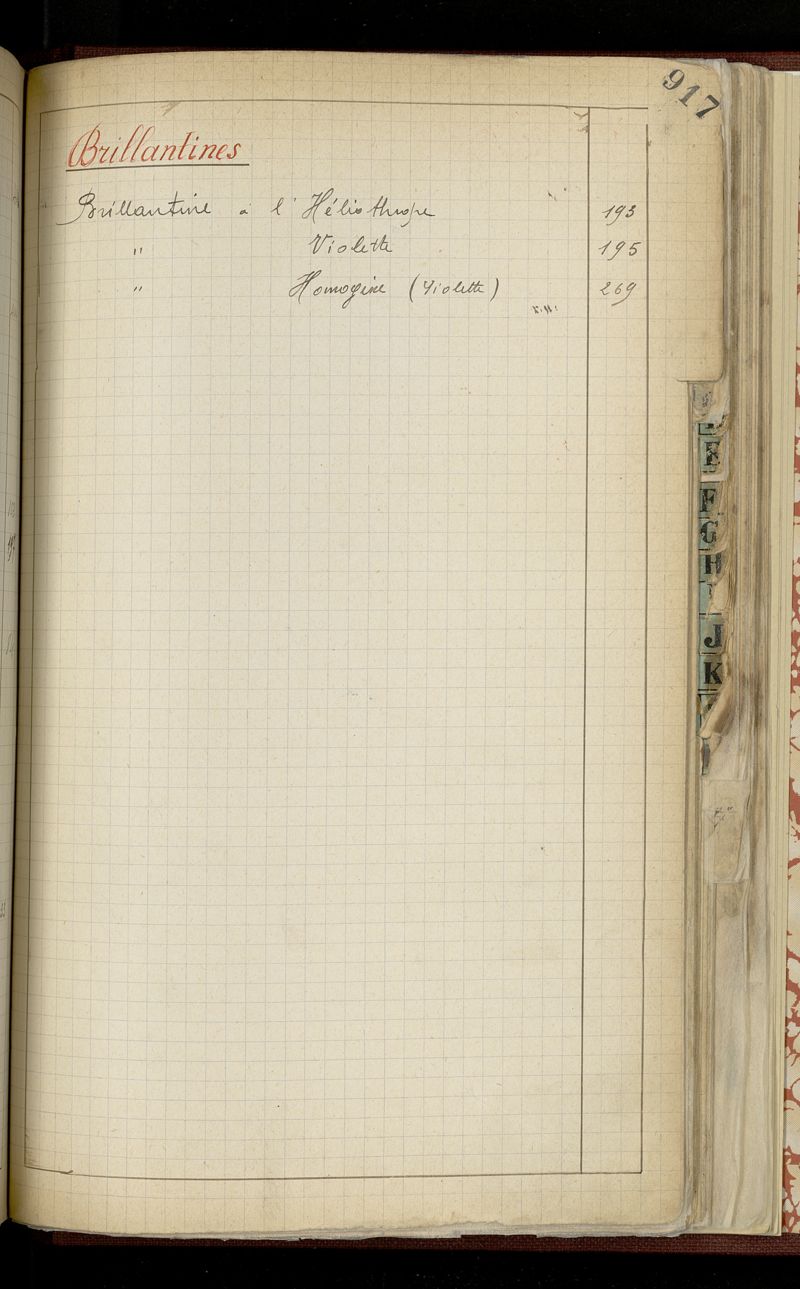 917
Brillantines
Brillantine à l'Héliothrope 193
" Violette 195
" Homogine (Violette) 269
E
F
G
H
I
J
K